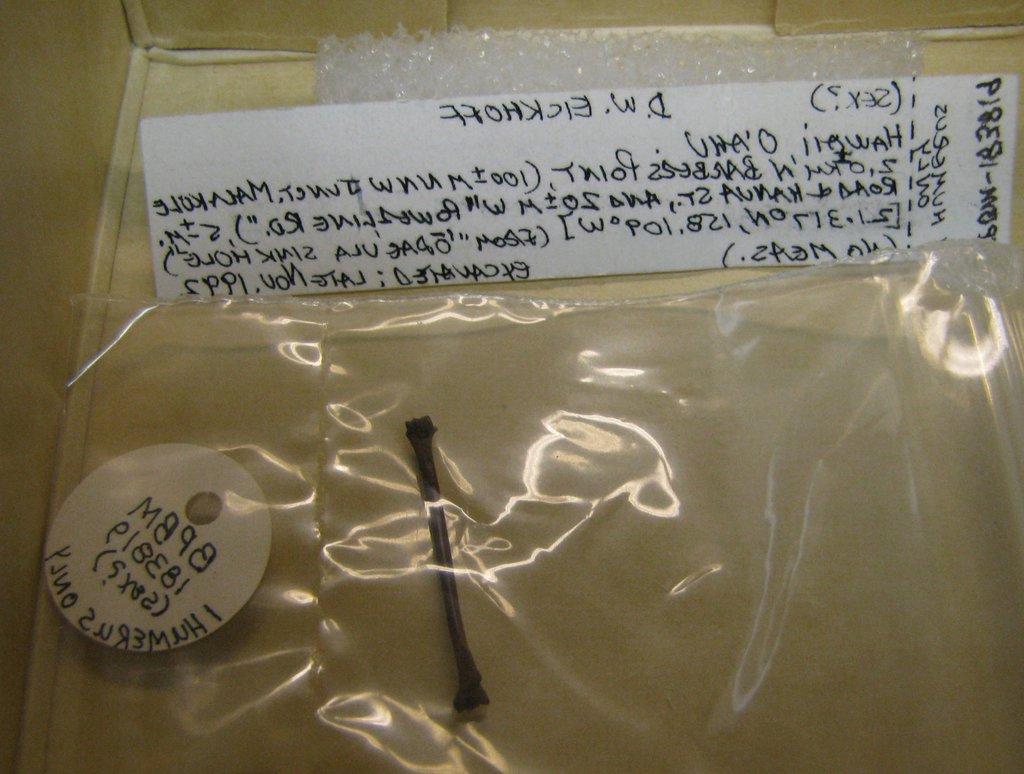 BPBM-183819
HUMERUS
ONLY
(SEX?) D.W. EICKHOFF
HAWAII, O'AHU.
2.0 KM N BARBERS POINT, (100± M NNW JUNCT. MALAKOLE
ROAD & HANUA ST., AND 20± M W "POWERLINE RD."), 5±M.
[21.317°N, 158.109°W] (FROM "ŌPAE ULA SINK HOLE)
(NO MEAS.) EXCAVATED; LATE NOV. 1992
BPBM
183819
(SEX?)
1 HUMERUS ONLY